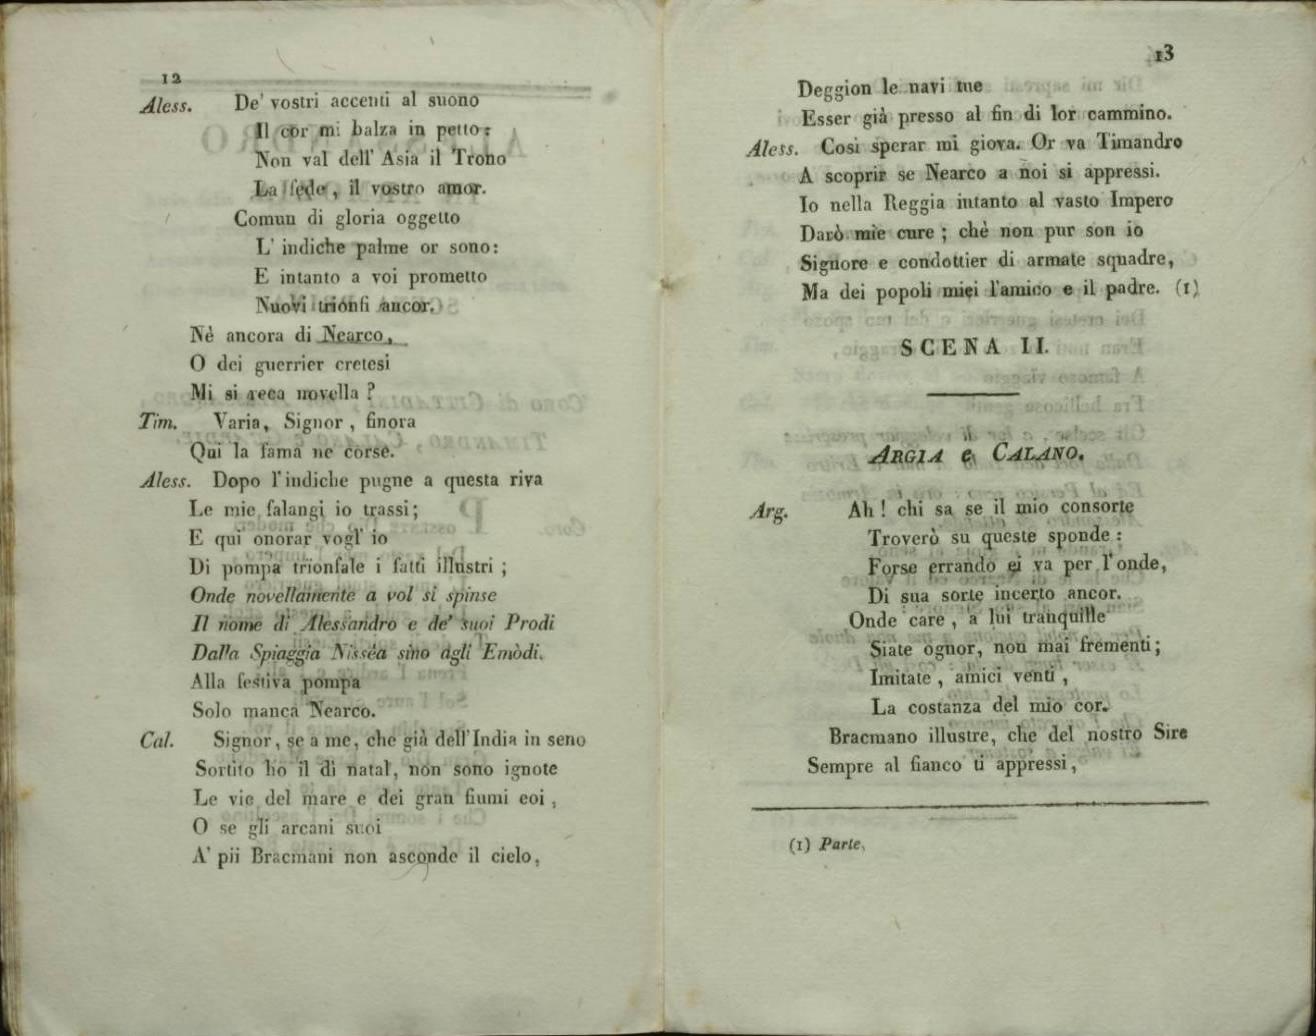 12
Aless. De' vostri accenti al suono
Il cor mi balza in petto:
Non val dell' Asia il Trono
La fede, il vostro amor.
Comun di gloria oggetto
L' indiche palme or sono:
E intanto a voi prometto
Nuovi trionfi ancor.
Nè ancora di Nearco,
O dei guerrier cretesi
Mi si reca novella?
Tim. Varia, Signor, finora
Qui la fama ne corse.
Aless. Dopo l'indiche pugne a questa riva
Le mie falangi io trassi;
E qui onorar vogl' io
Di pompa trionfale i fatti illustri;
Onde novellamente a vol si spinse
Il nome di Alessandro e de' suoi Prodi
Dalla Spiaggia Nissèa sino agli Emòdi.
Alla festiva pompa
Solo manca Nearco.
Cal. Signor, se a me, che già dell'India in seno
Sortito ho il dì natal, non sono ignote
Le vie del mare e dei gran fiumi eoi,
O se gli arcani suoi
A' pii Bracmani non asconde il cielo,
13
Deggion le navi tue
Esser già presso al fin di lor cammino.
Aless. Così sperar mi giova. Or va Timandro
A scoprir se Nearco a noi si appressi.
Io nella Reggia intanto al vasto Impero
Darò mie cure; chè non pur son io
Signore e condottier di armate squadre,
Ma dei popoli miei l'amico e il padre. (1)
SCENA II.
ARGIA e CALANO.
Arg. Ah! chi sa se il mio consorte
Troverò su queste sponde:
Forse errando ei va per l'onde,
Di sua sorte incerto ancor.
Onde care, a lui tranquille
Siate ognor, non mai frementi;
Imitate, amici venti,
La costanza del mio cor.
Bracmano illustre, che del nostro Sire
Sempre al fianco ti appressi,
(1) Parte.